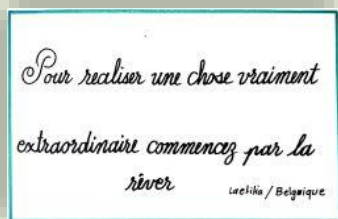 Pour realiser une chose vraiment
extraordinaire commencez par la
rêver
Laetitia / Belgique